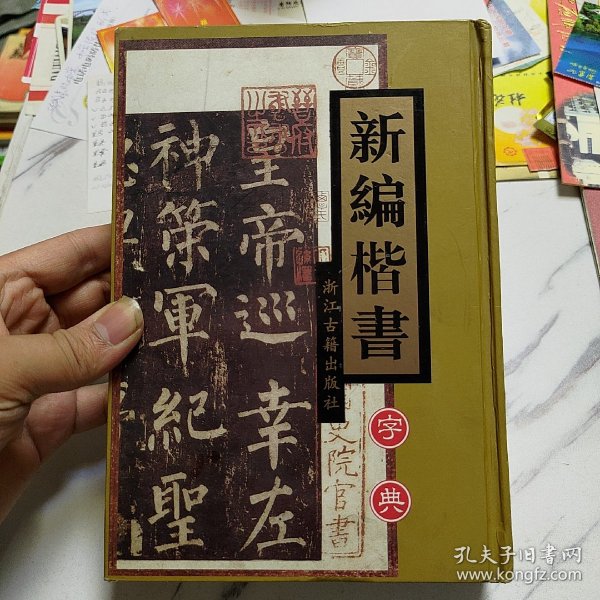 新編楷書
字典
浙江古籍出版社
皇帝巡幸左
神策軍紀聖
院官書
孔夫子旧书网
www.kongfz.com